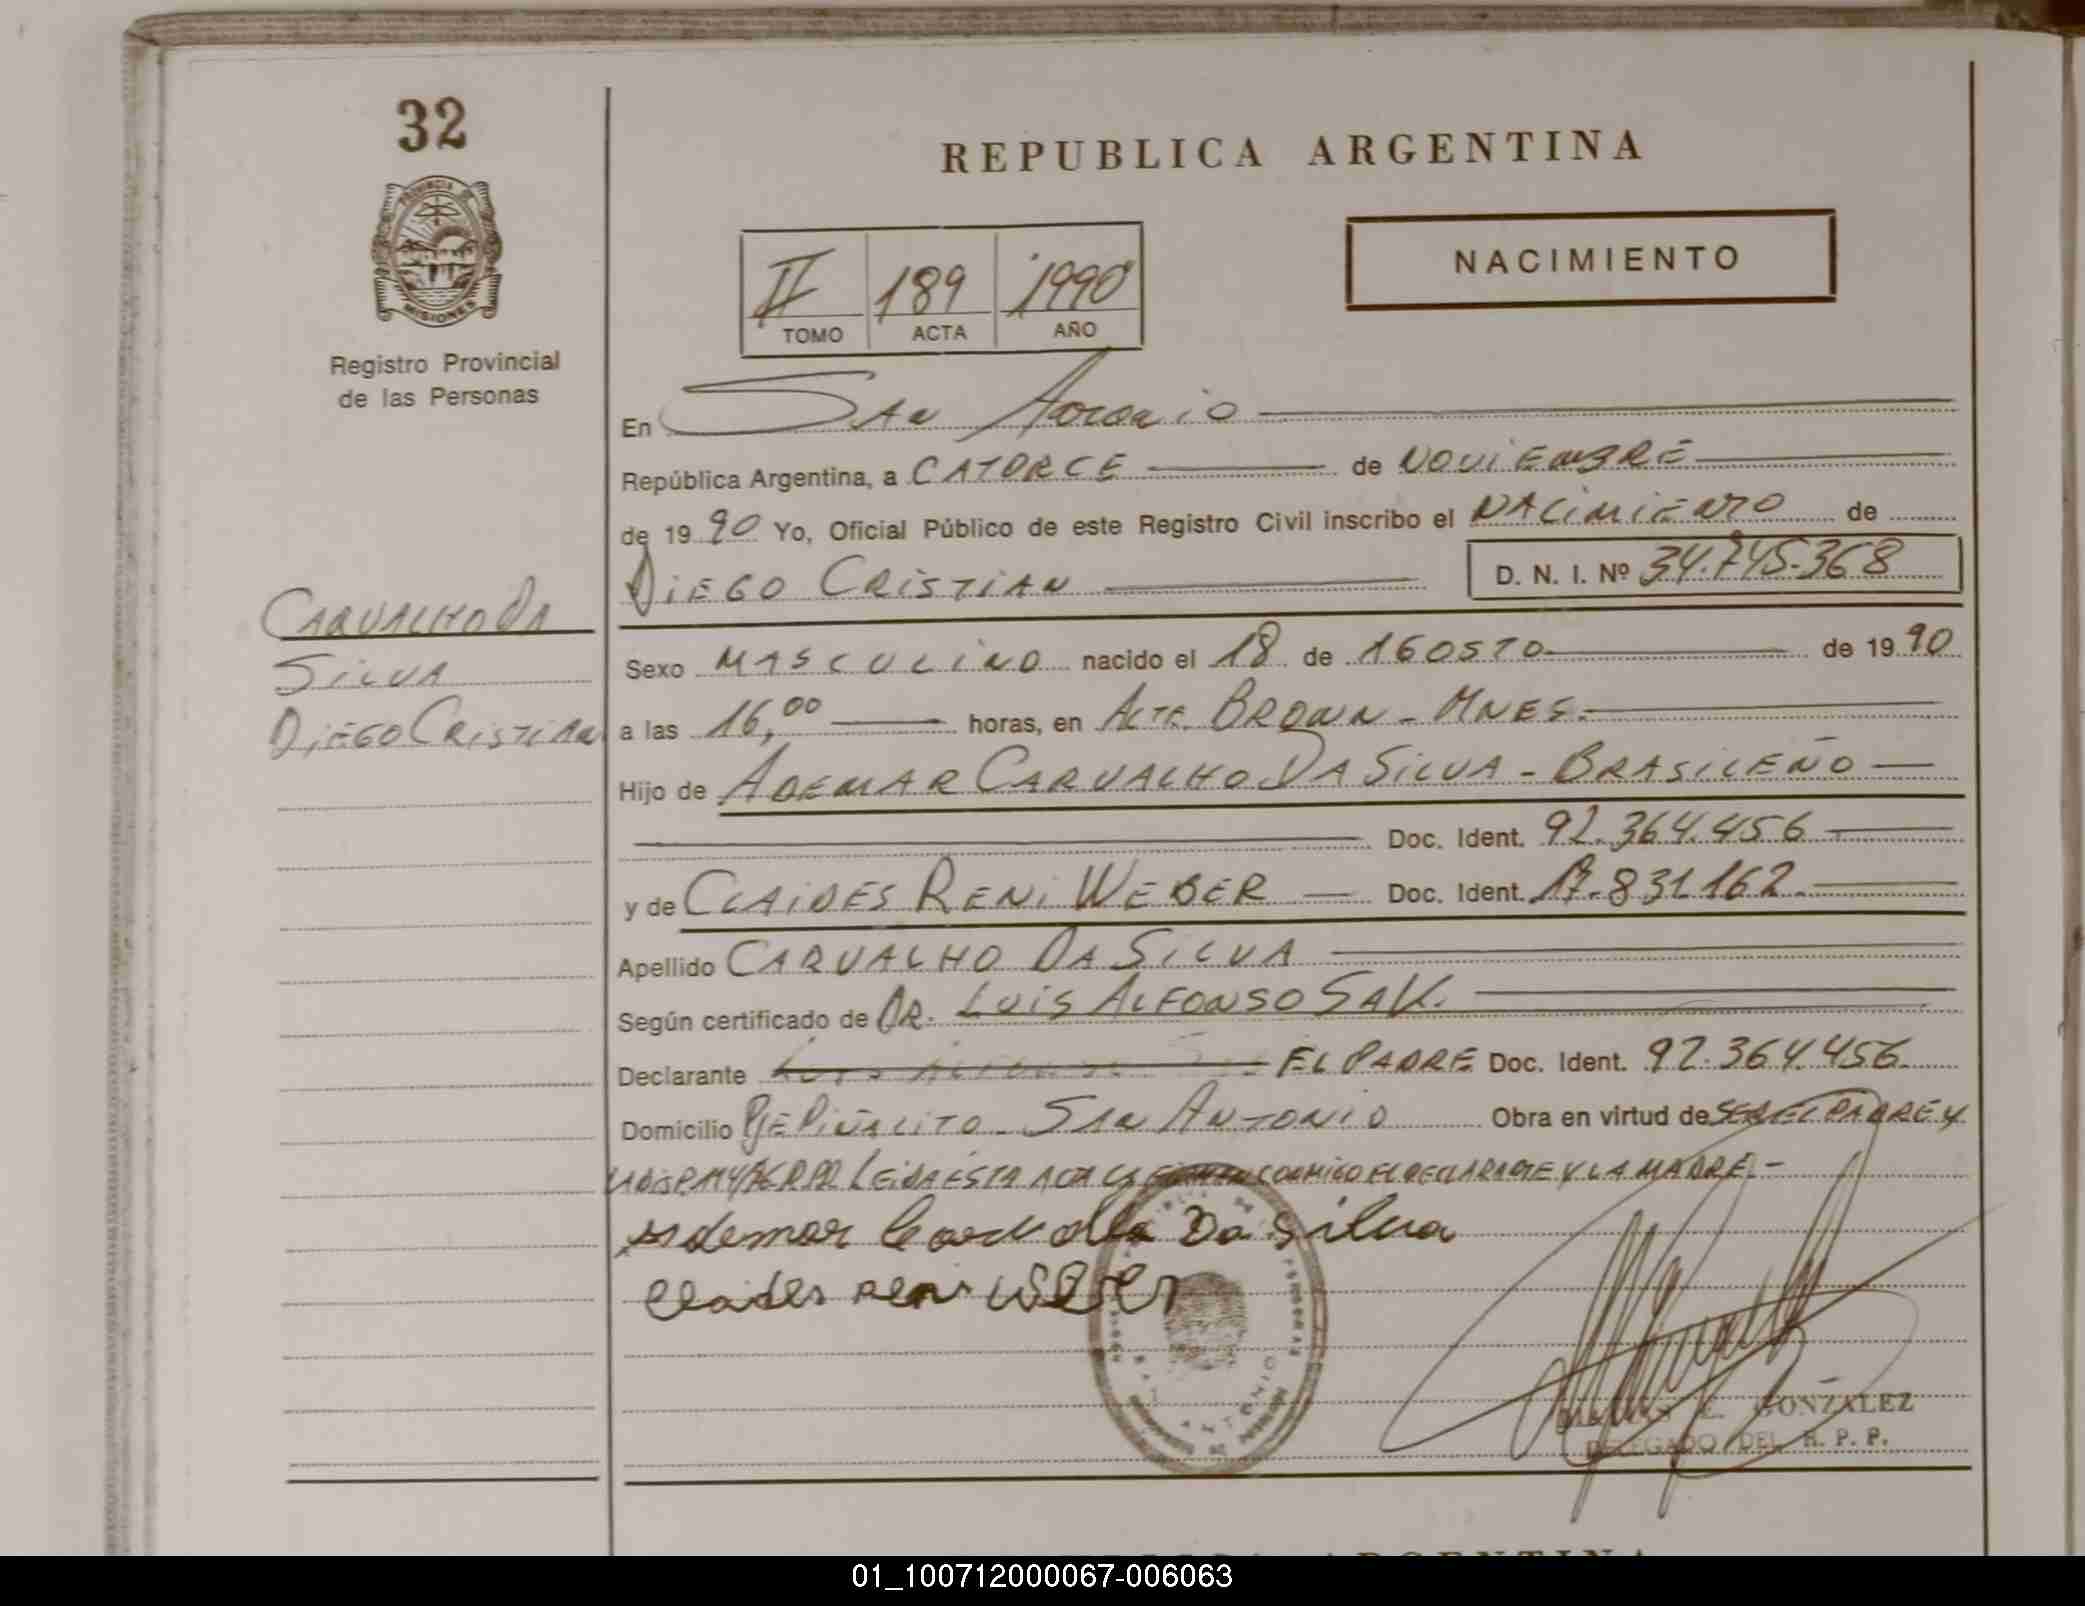 32
PROVINCIA DE
MISIONES
Registro Provincial
de las Personas
REPUBLICA ARGENTINA
NACIMIENTO
II 189 1990
TOMO ACTA AÑO
En San Antonio
República Argentina, a CATORCE de NOVIEMBRE
de 1990 Yo, Oficial Público de este Registro Civil inscribo el NACIMIENTO de
DIEGO CRISTIAN D. N. I. Nº 34.745.368
CARVALHO DA
SILVA
DIEGO CRISTIAN
Sexo MASCULINO nacido el 18 de AGOSTO de 1990
a las 16,00 horas, en ALTE. BROWN - MNES.
Hijo de ADEMAR CARVALHO DA SILVA - BRASILEÑO
Doc. Ident. 92.364.456
y de CLAIDES RENI WEBER Doc. Ident. 17.831.162.
Apellido CARVALHO DA SILVA
Según certificado de DR. LUIS ALFONSO SAK.
Declarante EL PADRE Doc. Ident. 92.364.456
Domicilio PJE PIÑALITO - SAN ANTONIO Obra en virtud de SER EL PADRE Y
LEIDA ESTA ACTA LA FIRMAN CONMIGO EL DECLARANTE Y LA MADRE.-
Ademar Carvalho Da Silva
Claides Reni Weber
SAN ANTONIO
GONZALEZ
DELEGADO DEL R. P. P.
01_100712000067-006063